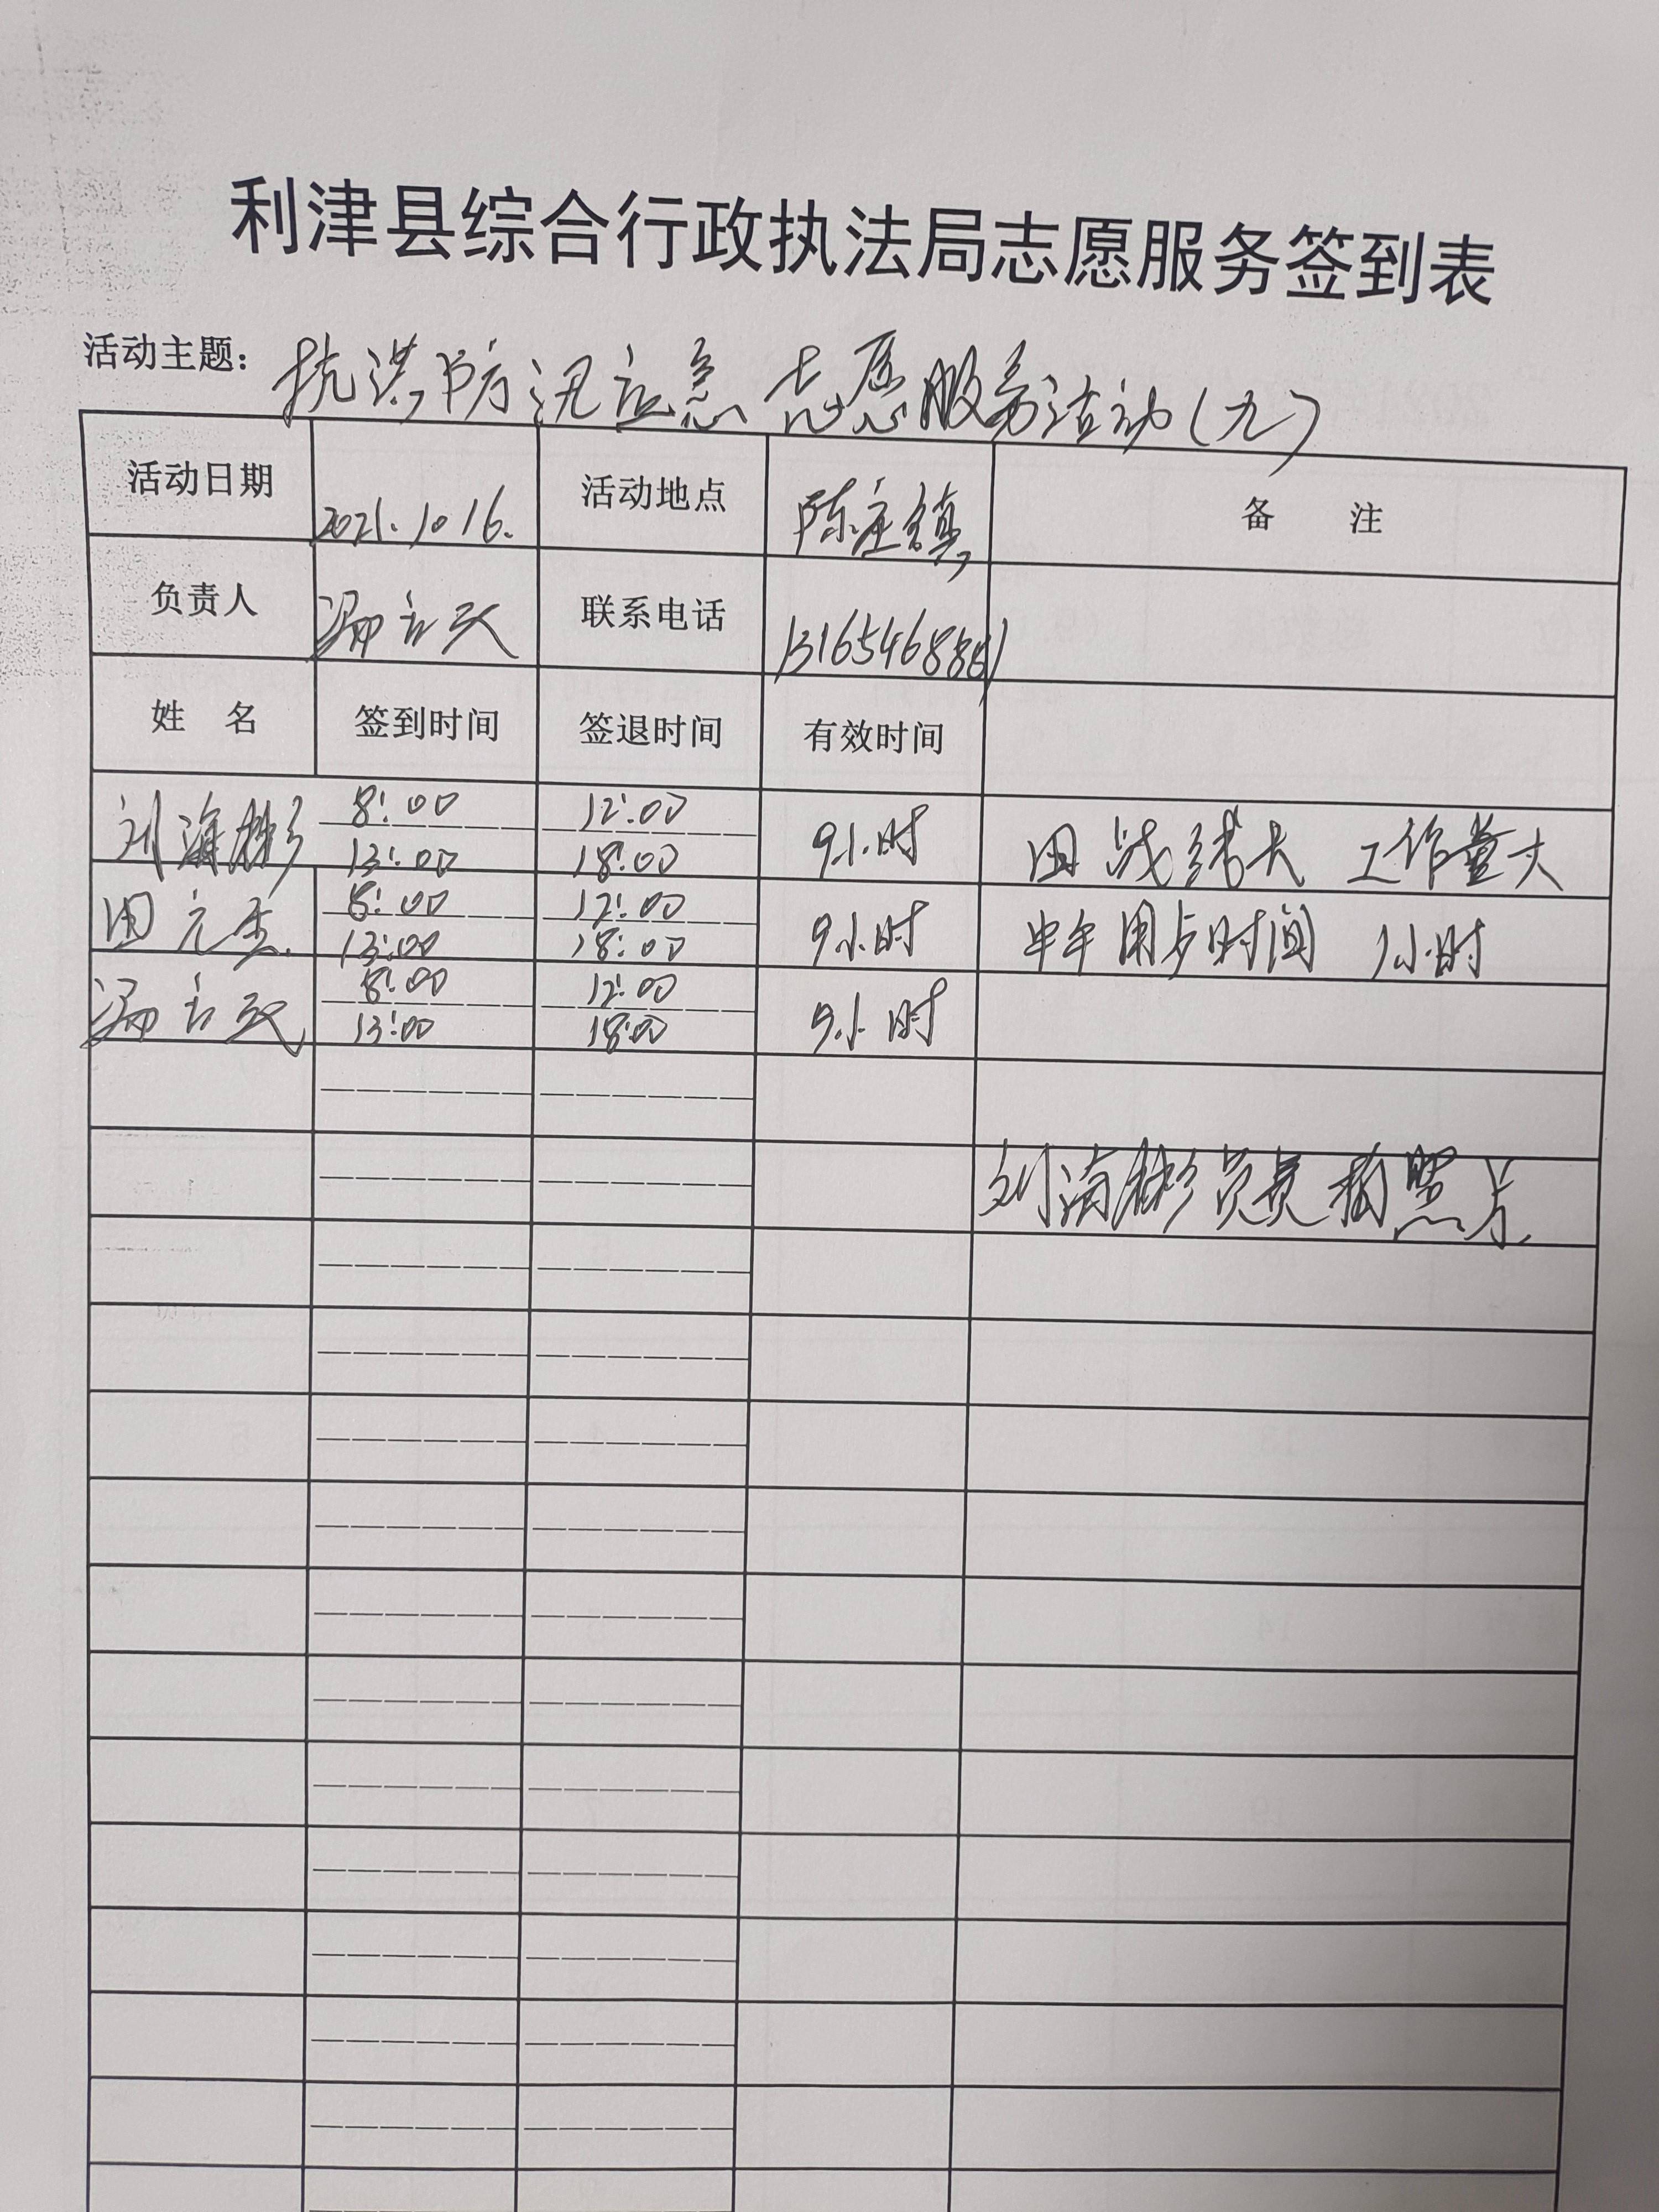 利津县综合行政执法局志愿服务签到表
活动主题: 抗洪防汛应急志愿服务活动(九)
活动日期 2021.10 16. 活动地点 陈庄镇 备 注
负责人 联系电话
姓 名 签到时间 签退时间 有效时间
刘海彬 8:00 12:00 9小时 因战线长 工作量大
13:00 18:00
田元 8:00 12:00 9小时 中午用与时间 1小时
13:00 18:00
8:00 12:00 9小时
13:00 18:00
刘海彬负责拍照片